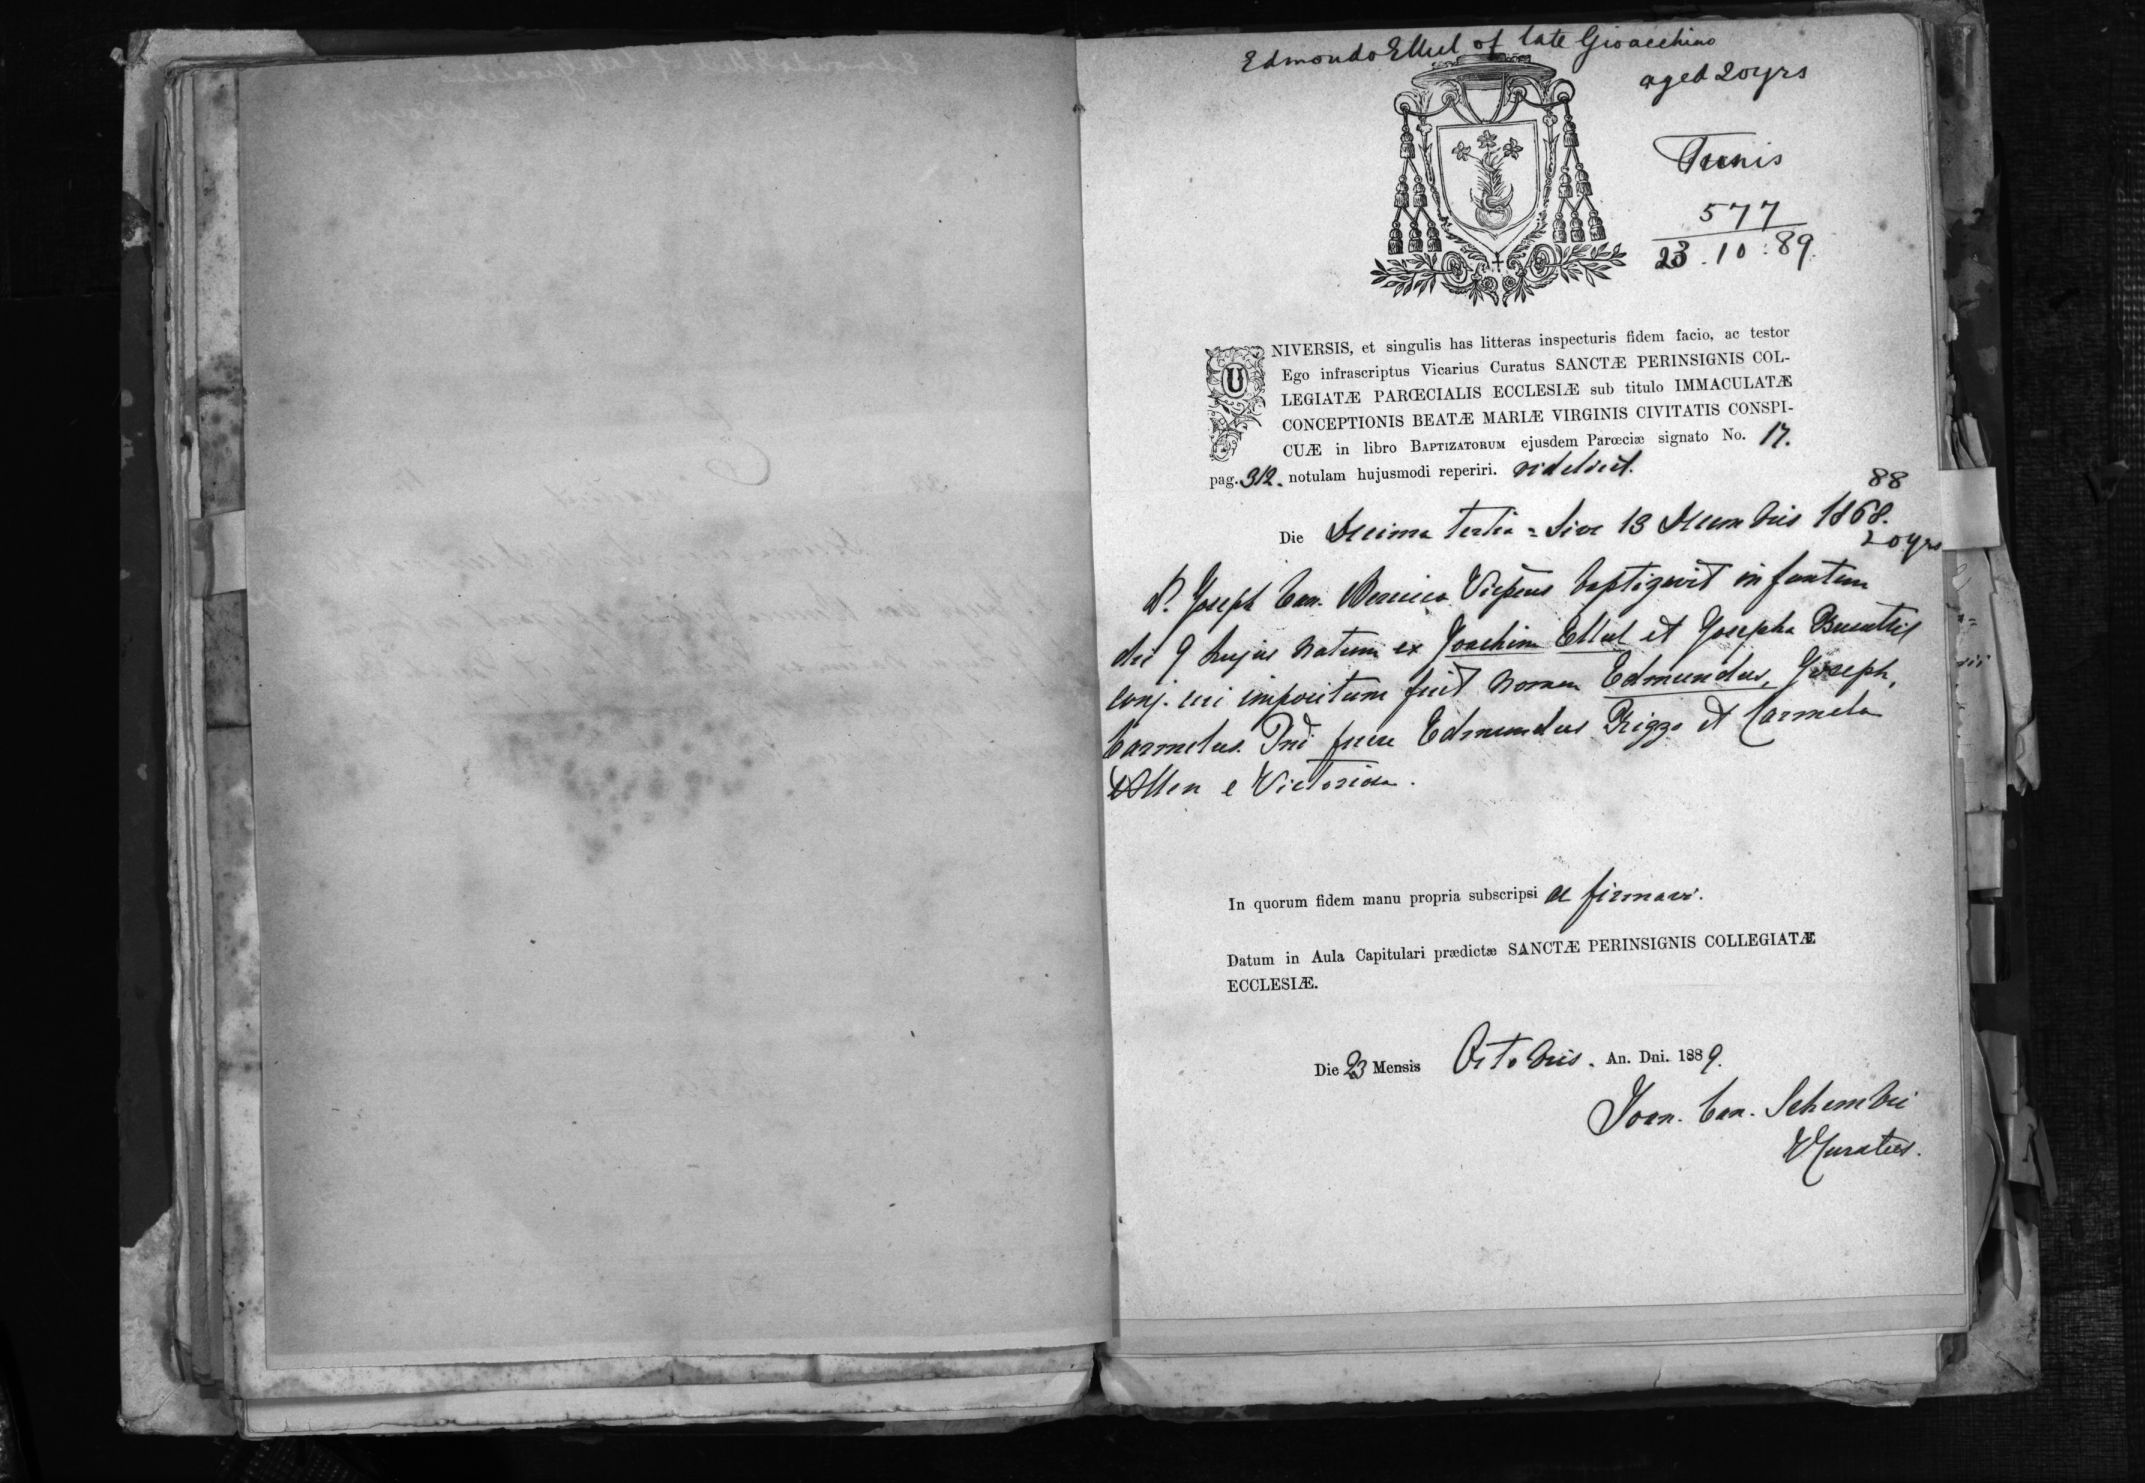 Edmondo Ellul of late Gioacchino
aged 20yrs
Tunis
577
23.10:89.
UNIVERSIS, et singulis has litteras inspecturis fidem facio, ac testor
Ego infrascriptus Vicarius Curatus SANCTÆ PERINSIGNIS COL-
LEGIATÆ PARŒCIALIS ECCLESIÆ sub titulo IMMACULATÆ
CONCEPTIONIS BEATÆ MARIÆ VIRGINIS CIVITATIS CONSPI-
CUÆ in libro BAPTIZATORUM ejusdem Parœciæ signato No. 17.
pag. 312. notulam hujusmodi reperiri. videlicet.
88
Die Decima tertia = Sive 13 Decembris 1868.
20yrs
D. Joseph Can. baptizavit infantem
die 9 hujus natum ex Joachim Ellul et Josepha
conj. cui impositum fuit nomen Edmundus, Joseph,
Carmelus. Pni fuere Edmundus Rizzo et Carmela
e Victoriosa.
In quorum fidem manu propria subscripsi ac firmavi.
Datum in Aula Capitulari prædictæ SANCTÆ PERINSIGNIS COLLEGIATÆ
ECCLESIÆ.
Die 23 Mensis Octobris. An. Dni. 1889.
Joan. Can. Schembri
V Curatus.